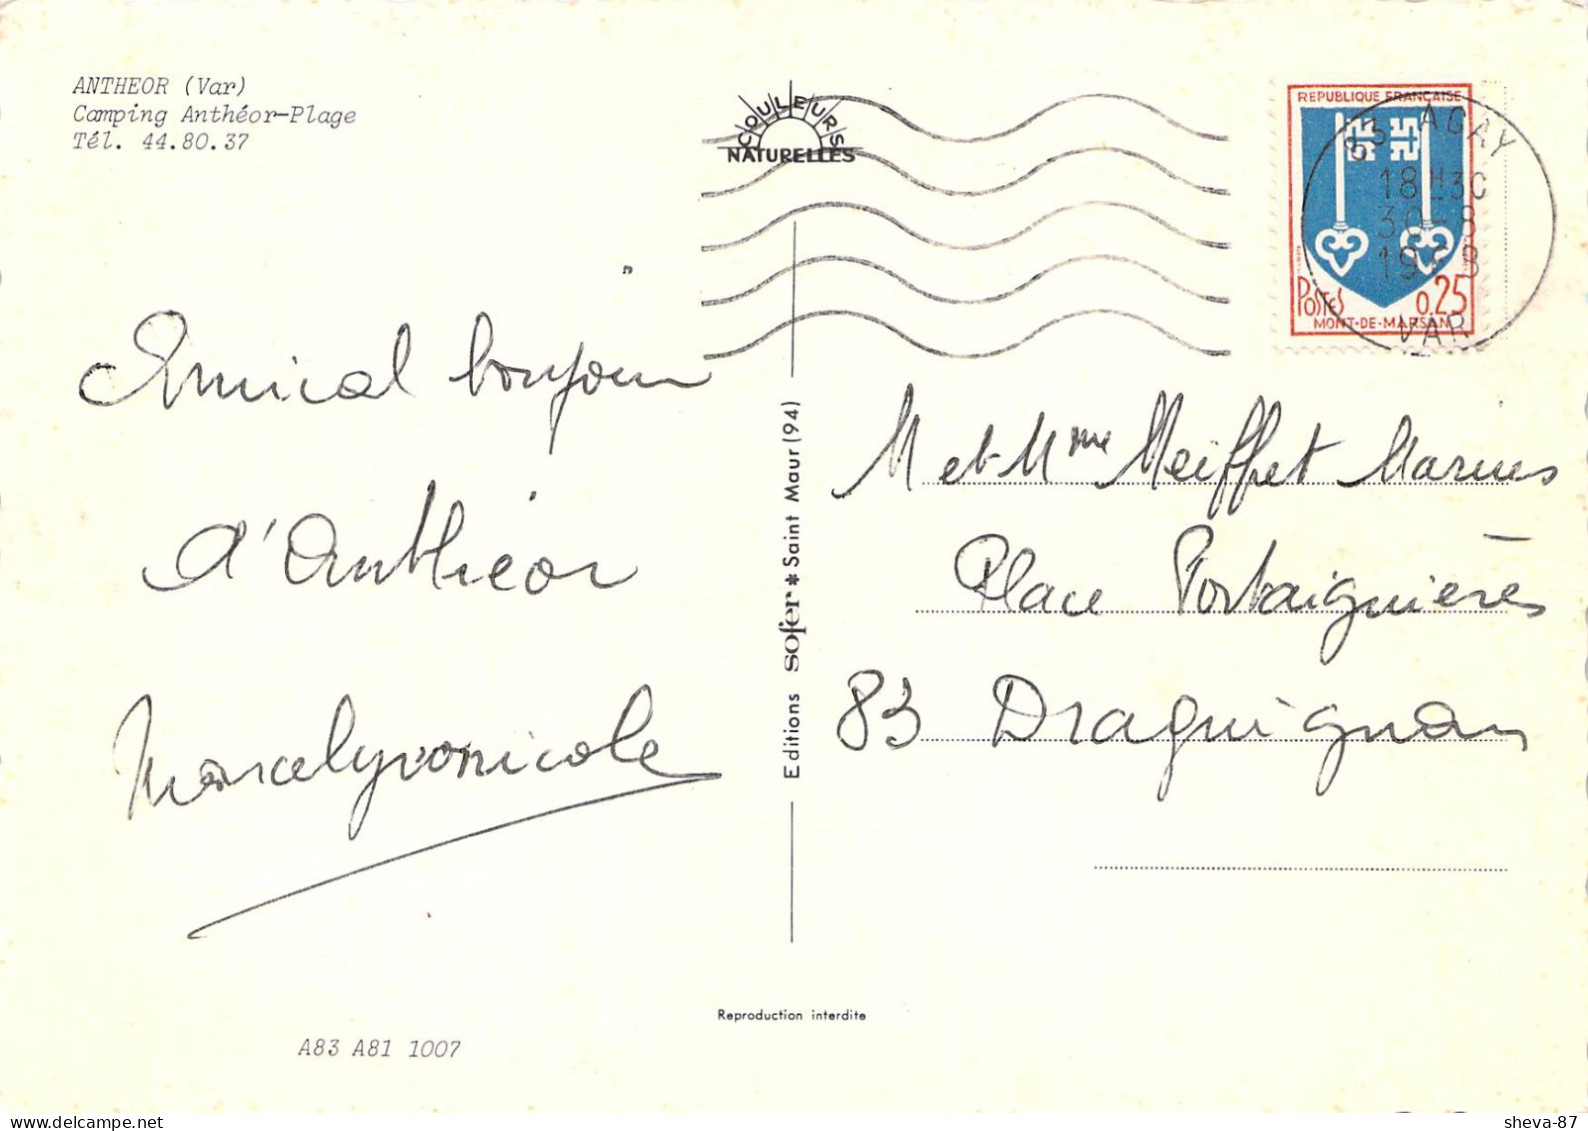 ANTHEOR (Var)
Camping Anthéor-Plage
Tél. 44.80.37
COULEURS
NATURELLES
REPUBLIQUE FRANÇAISE
POSTES 0,25
MONT-DE-MARSAN
83 AGAY
18H30
30-8
1968
VAR
Amical bonjour
d'Anthéor
Marcelyvonnicole
Editions sofer * Saint Maur (94)
M et Mme Meiffret Marius
Place Portaiguières
83 Draguignan
Reproduction interdite
A83 A81 1007
sheva-87